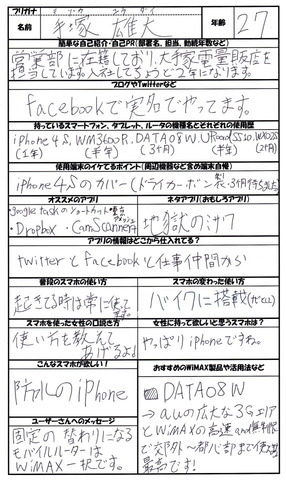 フリガナ テヅカ ユウダイ
名前 手塚 雄大
年齢 27
簡単な自己紹介・自己PR(部署名、担当、勤続年数など)
営業部に在籍しており、大手家電量販店を
担当しています。入社してちょうど2年になります。
ブログやTwitterなど
facebookで実名でやってます。
持っているスマートフォン、タブレット、ルータの機種名とそれぞれの使用歴
iphone4S, WM3600R, DATA08W, URoad SS10,
(1年) (半年) (3ヶ月) (半年) (2ヶ月)
使用端末のイケてるポイント(周辺機器など含め端末自慢)
iphone4Sのカバー(ドライカーボン製・3ヶ月待ち
オススメのアプリ
・google taskのショートカット
・Dropbox ・CamScanner
ネタアプリ(おもしろアプリ)
地獄のミサワ
アプリの情報はどこから仕入れてる?
twitterとfacebookと仕事仲間から
普段のスマホの使い方
起きてる時は常に使って
ます。
スマホの変わった使い方
バイクに搭載(ナビ
スマホを使った女性の口説き方
使い方を教えて
あげるよ♪
女性に持って欲しいと思うスマホは?
やっぱりiphoneですね。
こんなスマホが欲しい!
防水のiPhone
おすすめのWiMAX製品や活用法など
DATA08W
→auの広大な3Gエリア
とWiMAXの高速and無制限
で郊外〜都心部まで使えて
最高です!
ユーザーさんへのメッセージ
固定の替わりになる
モバイルルーターは
WiMAX一択です。